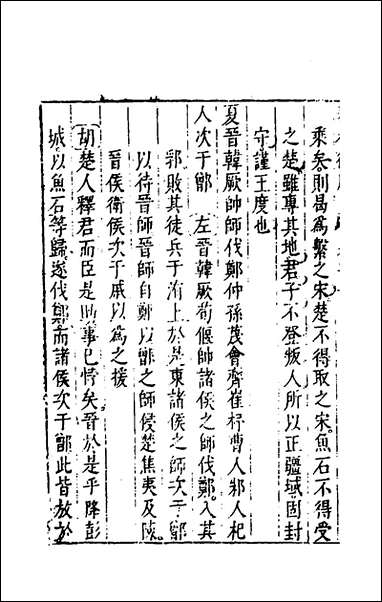 乘矣則曷為繫之宋楚不得取之宋魚石不得受
之楚雖專其地君子不登叛人所以正疆域固封
守謹王度也
夏晉韓厥帥師伐鄭仲孫蔑會齊崔杼曹人邾人杞
人次于鄫 左晉韓厥荀偃帥諸侯之師伐鄭入其
郛敗其徒兵于洧上於是東諸侯之師次于鄫
以待晉師晉師自鄭以鄫之師侵楚焦夷及陳
晉侯衛侯次于戚以為之援
胡楚人釋君而臣是助事已悖矣晉於是乎降彭
城以魚石等歸遂伐鄭而諸侯次于鄫此皆放於